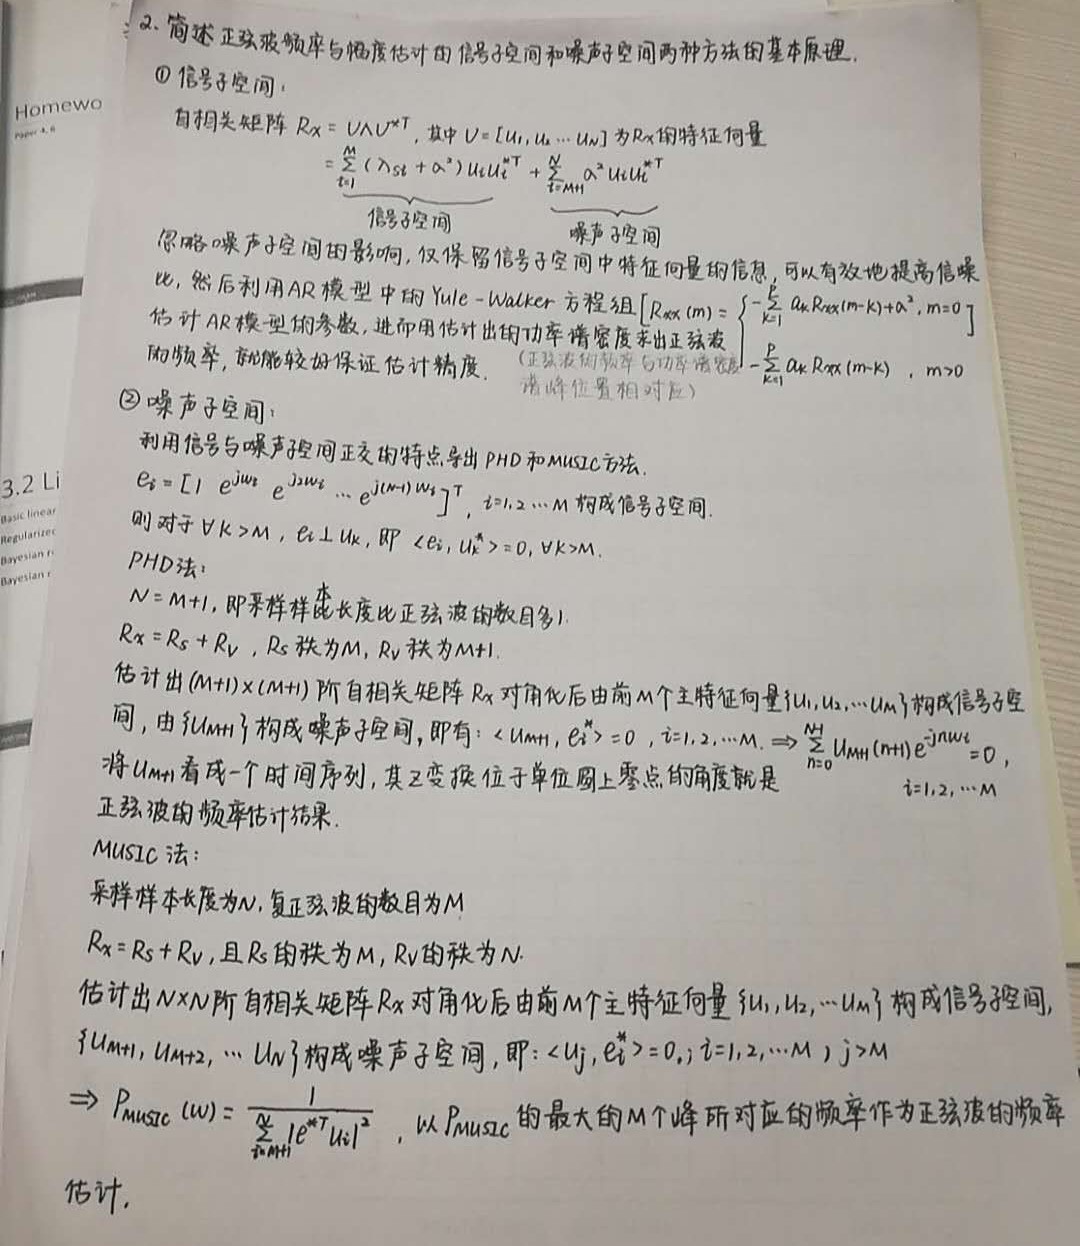 2. 简述正弦波频率与幅度估计的信号子空间和噪声子空间两种方法的基本原理.
① 信号子空间:
Homewo
自相关矩阵 Rx = UΛU*ᵀ, 其中 U = [u₁, u₂ … uN] 为Rx的特征向量
= Σ_{i=1}^{M} (λsi + a²) uiui*ᵀ + Σ_{i=M+1}^{N} a² uiui*ᵀ
信号子空间 噪声子空间
忽略噪声子空间的影响, 仅保留信号子空间中特征向量的信息, 可以有效地提高信噪
比, 然后利用AR模型中的Yule-Walker方程组 [Rxx(m) = { -Σ_{k=1}^{p} akRxx(m-k)+a², m=0 ]
估计AR模型的参数, 进而用估计出的功率谱密度求出正弦波
的频率, 就能较好保证估计精度. (正弦波的频率与功率谱密度 -Σ_{k=1}^{p} akRxx(m-k), m>0
谱峰位置相对应)
② 噪声子空间:
利用信号与噪声子空间正交的特点导出PHD和MUSIC方法.
3.2 Li
ei = [1 e^{jwi} e^{j2wi} … e^{j(N-1)wi}]ᵀ, i=1,2…M 构成信号子空间.
Basic linear
则对于∀k>M, ei⊥uk, 即 <ei, uk*>=0, ∀k>M.
Regularized
Bayesian r
PHD法:
Bayesian r
N=M+1, 即采样样本长度比正弦波的数目多1.
Rx = Rs + Rv, Rs秩为M, Rv秩为M+1.
估计出(M+1)×(M+1)阶自相关矩阵Rx对角化后由前M个主特征向量{u₁, u₂, … uM}构成信号子空
间, 由{uM+1}构成噪声子空间, 即有: <uM+1, ei*>=0, i=1,2,…M. ⇒ Σ_{n=0}^{N-1} uM+1(n+1)e^{-jnwi}=0,
将uM+1看成一个时间序列, 其Z变换位于单位圆上零点的角度就是 i=1,2,…M
正弦波的频率估计结果.
MUSIC法:
采样样本长度为N, 复正弦波的数目为M
Rx = Rs + Rv, 且Rs的秩为M, Rv的秩为N.
估计出N×N阶自相关矩阵Rx对角化后由前M个主特征向量{u₁, u₂, … uM}构成信号子空间,
{uM+1, uM+2, … uN}构成噪声子空间, 即: <uj, ei*>=0, ; i=1,2,…M, j>M
⇒ PMUSIC(w) = 1 / Σ_{i=M+1}^{N} |e*ᵀui|², 以PMUSIC的最大的M个峰所对应的频率作为正弦波的频率
估计.